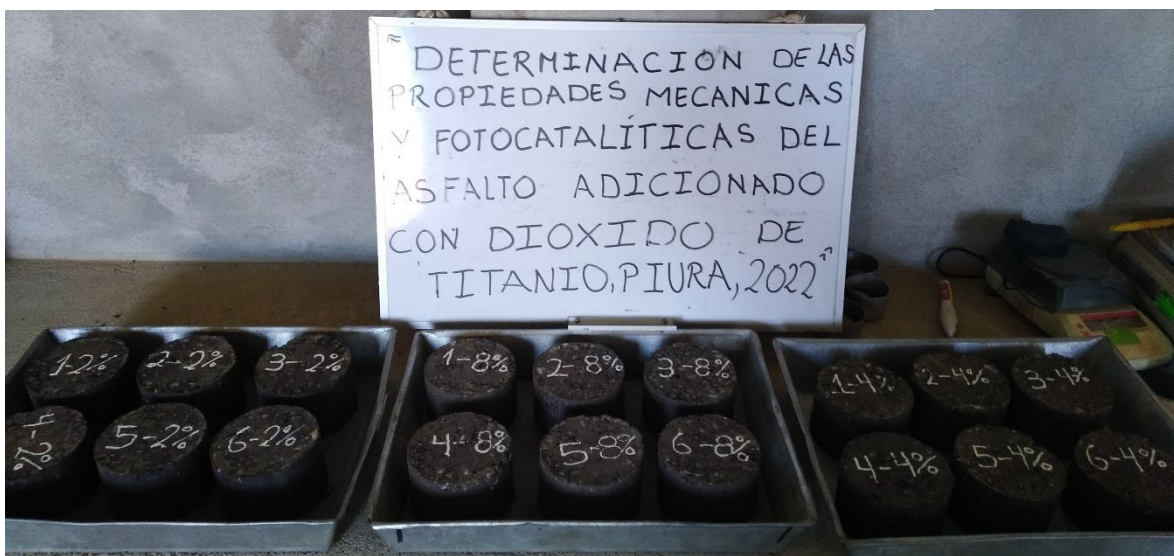 " DETERMINACION DE LAS
PROPIEDADES MECANICAS
Y FOTOCATALÍTICAS DEL
ASFALTO ADICIONADO
CON DIOXIDO DE
TITANIO, PIURA, 2022"
1-2% 2-2% 3-2%
4-2% 5-2% 6-2%
1-8% 2-8% 3-8%
4-8% 5-8% 6-8%
1-4% 2-4% 3-4%
4-4% 5-4% 6-4%